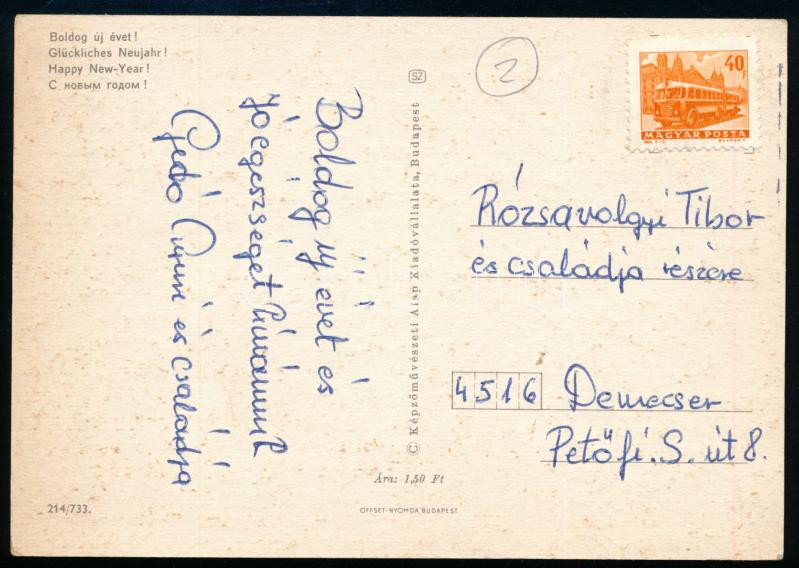 Boldog új évet!
Glückliches Neujahr!
Happy New-Year!
С новым годом!
2
SZ
40 F
MAGYAR POSTA
Boldog új évet és
jó egészséget kívánunk
Gedó és családja
© Képzőművészeti Alap Kiadóvállalata, Budapest
Rózsavolgyi Tibor
és családja részére
4516 Demecser
Petőfi. S. út 8.
Ára: 1,50 Ft
214/733.
OFFSET-NYOMDA, BUDAPEST